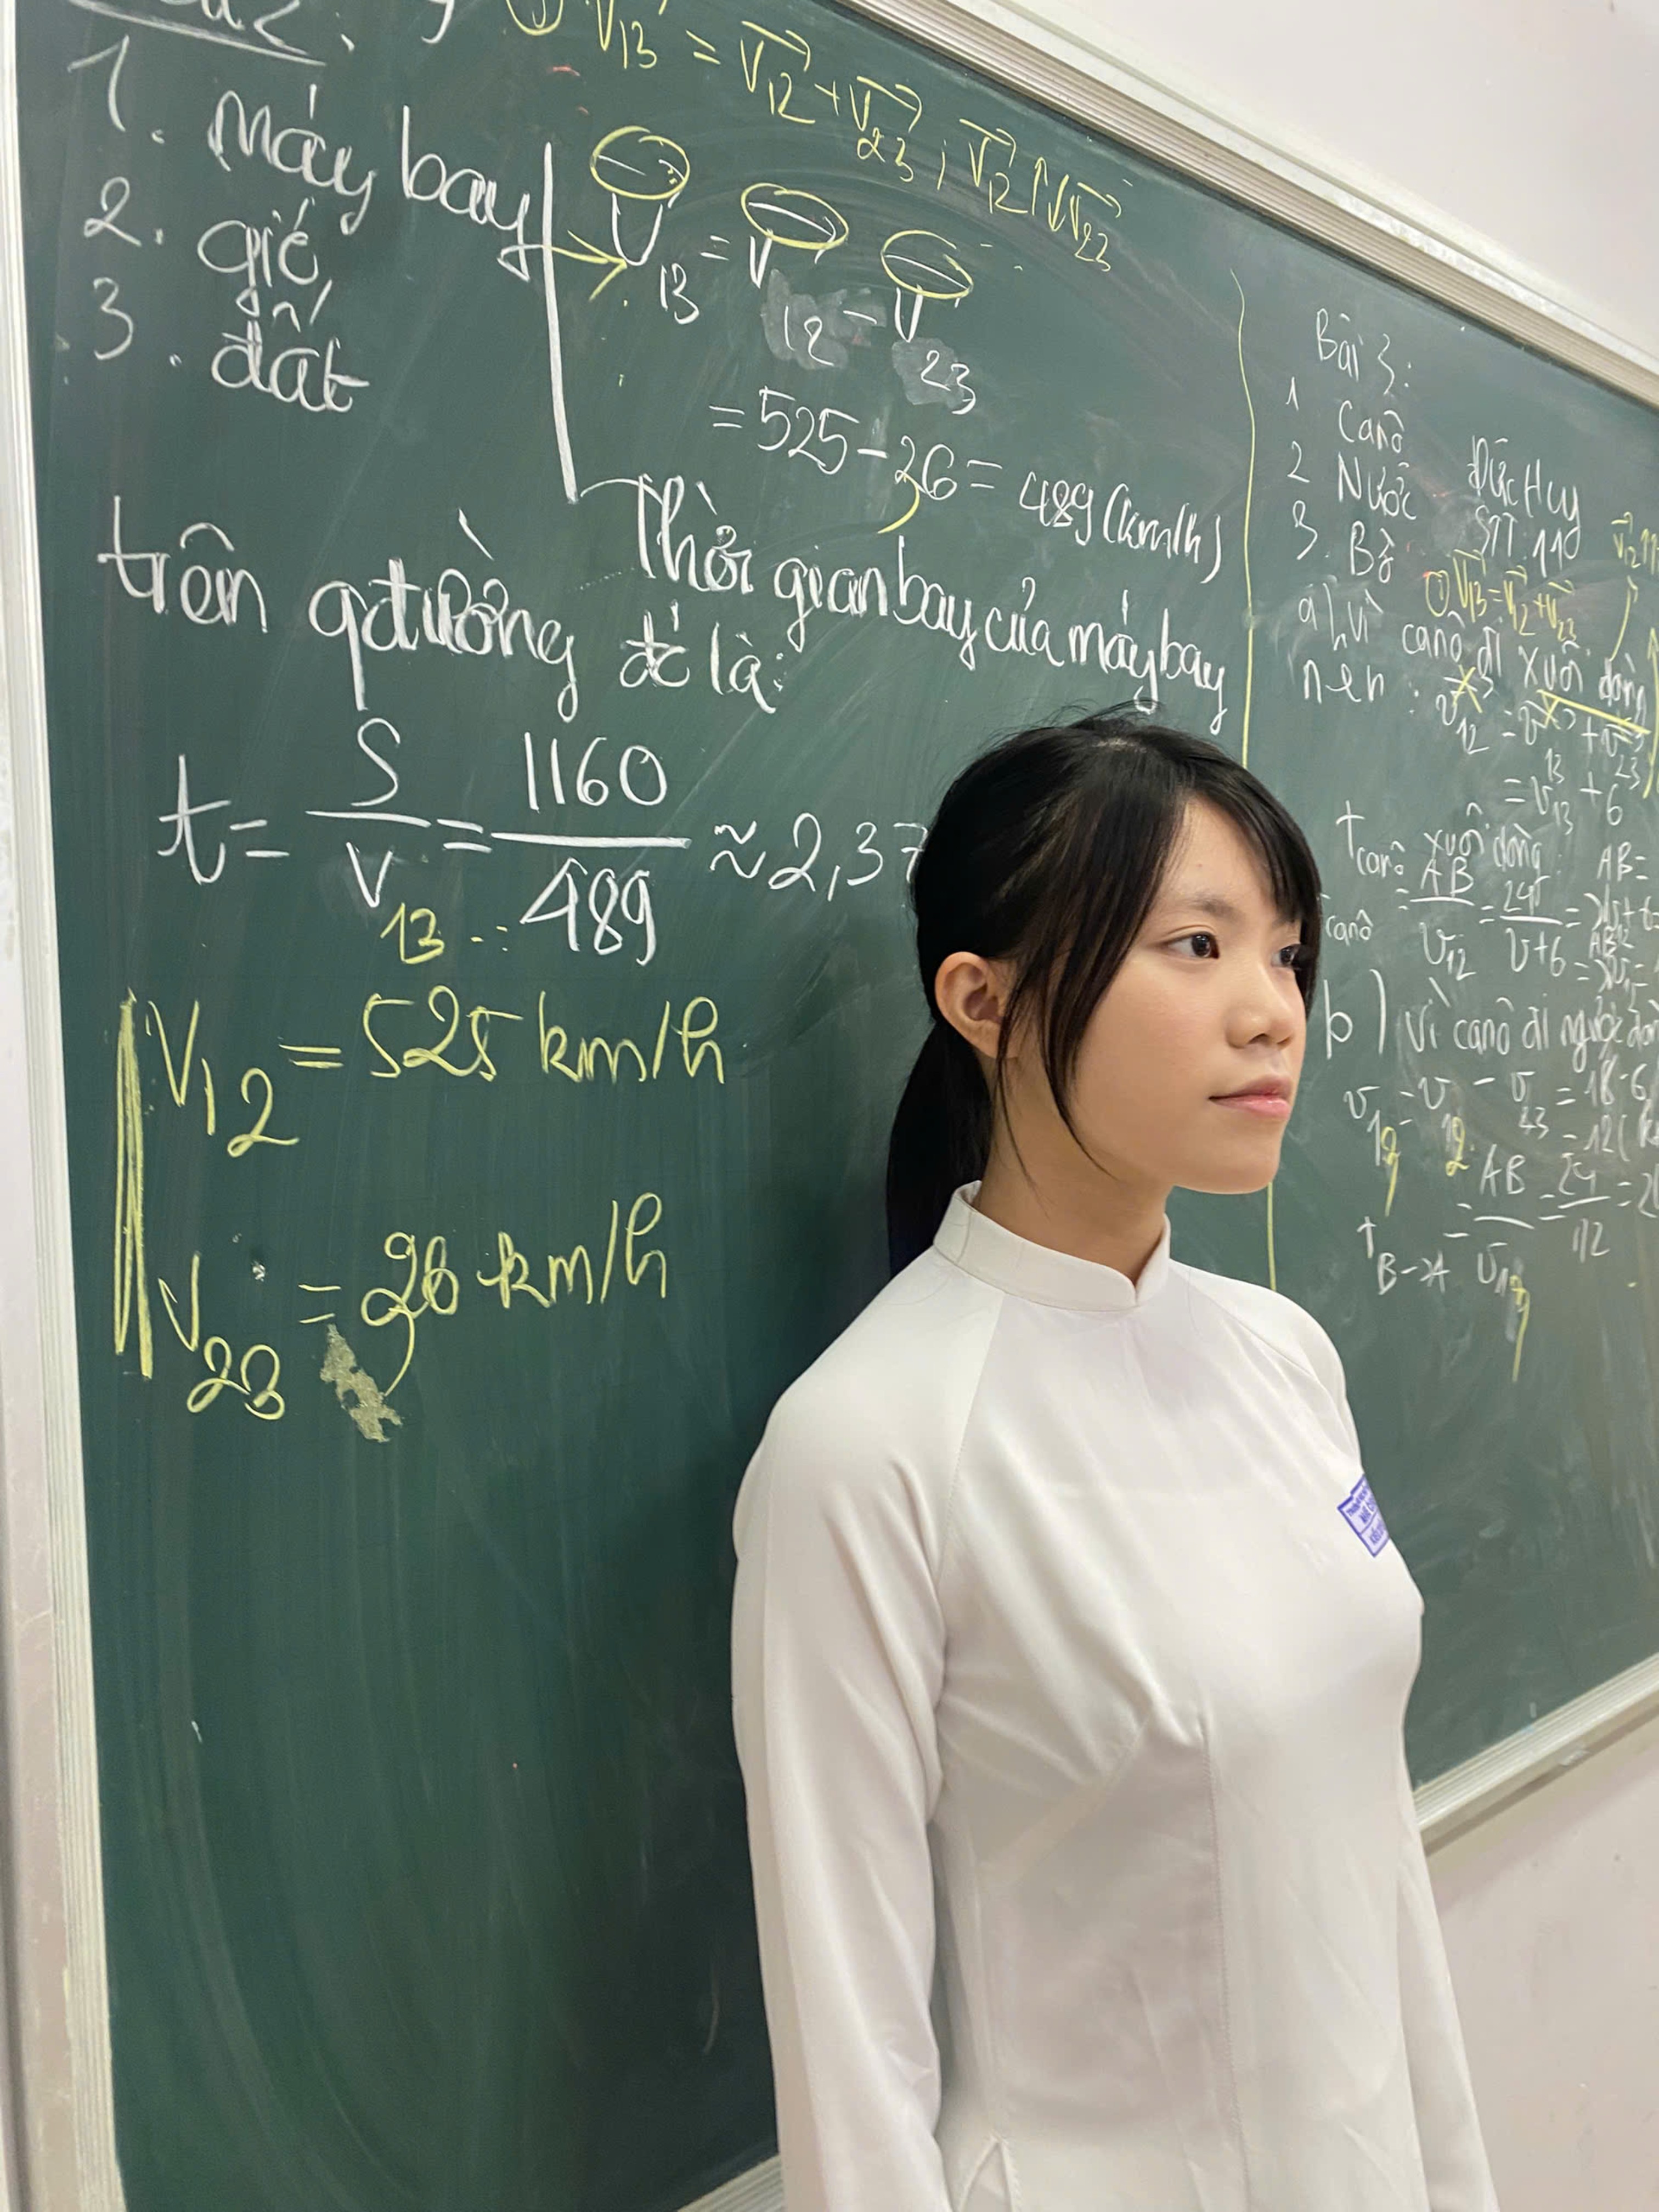 ① v⃗13 = v⃗12 + v⃗23 ; v⃗12 ↑↓ v⃗23
1. máy bay
2. gió
3. đất
v13 = v12 - v23
= 525 - 36 = 489 (km/h)
Thời gian bay của máy bay
trên qđường đó là:
t = S/v13 = 1160/489 ≈ 2,37
v12 = 525 km/h
v23 = 36 km/h
Bài 3:
1 Canô
2 Nước
3. Bờ
Đức Huy
STT: 110
① v⃗13 = v⃗12 + v⃗23
a) Vì canô đi xuôi dòng
nên : v12 = v13 + v23
= v13 + 6
t canô xuôi dòng: AB =
b) Vì canô đi ngược
= 18 - 6
= 12 (
t B→A = AB/v13 = 24/12 = 2